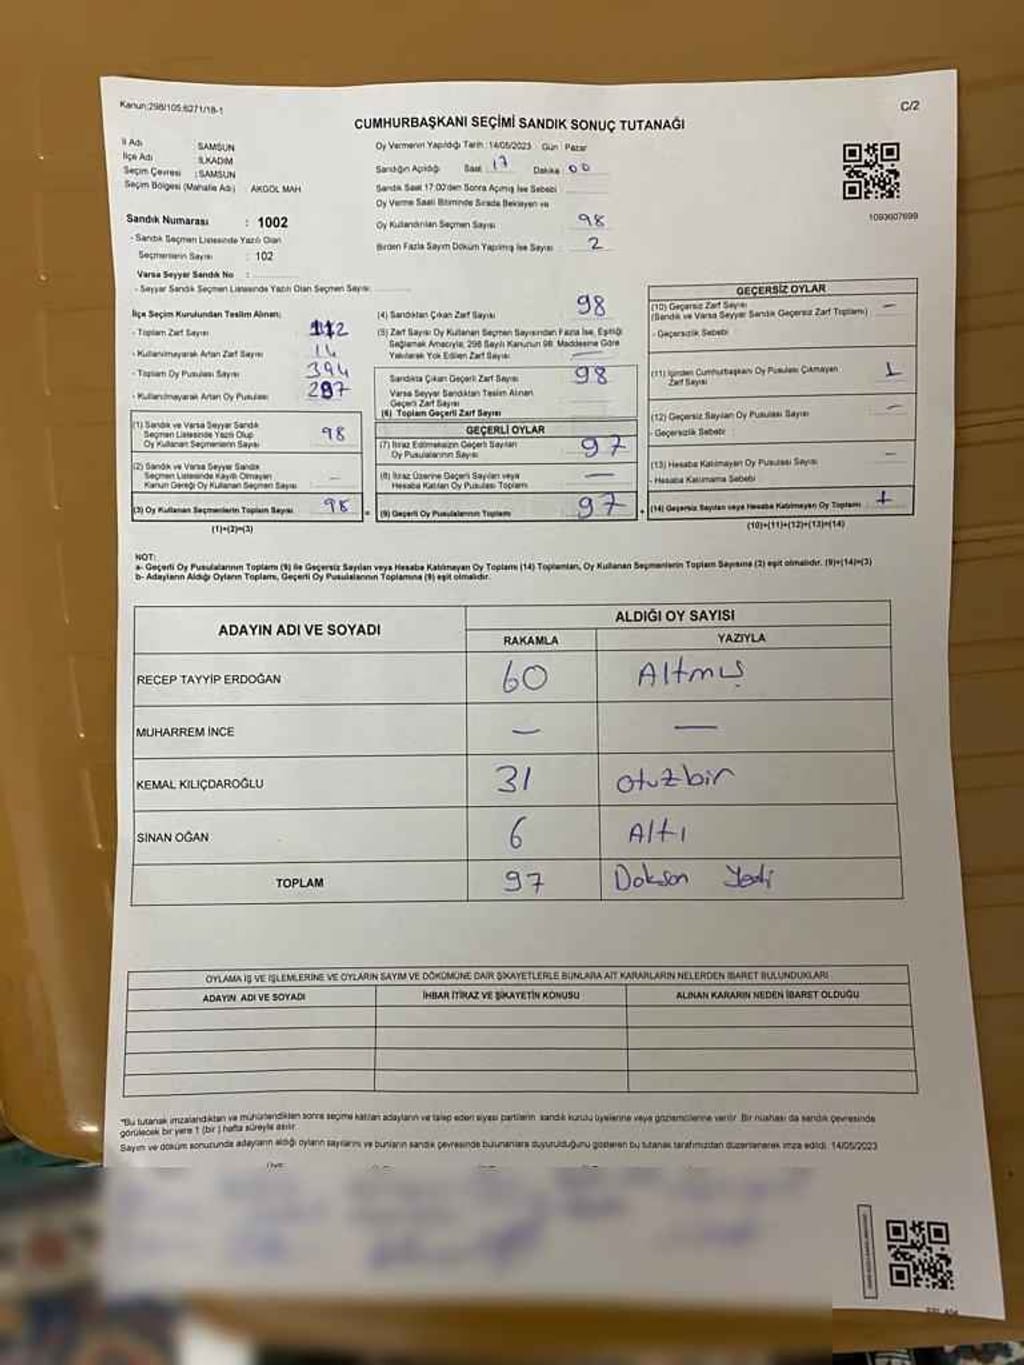 Kanun:298/105;6271/18-1
C/2
CUMHURBAŞKANI SEÇİMİ SANDIK SONUÇ TUTANAĞI
İl Adı SAMSUN
İlçe Adı İLKADIM
Seçim Çevresi : SAMSUN
Seçim Bölgesi (Mahalle Adı) AKGÖL MAH
Sandık Numarası : 1002
- Sandık Seçmen Listesinde Yazılı Olan
Seçmenlerin Sayısı : 102
Varsa Seyyar Sandık No :
- Seyyar Sandık Seçmen Listesinde Yazılı Olan Seçmen Sayısı:
Oy Vermenin Yapıldığı Tarih :14/05/2023 Gün : Pazar
Sandığın Açıldığı Saat 17 Dakika 00
Sandık Saat 17:00'den Sonra Açılmış İse Sebebi
Oy Verme Saati Bitiminde Sırada Bekleyen ve
Oy Kullandırılan Seçmen Sayısı 98
Birden Fazla Sayım Döküm Yapılmış İse Sayısı 2
1093607699
İlçe Seçim Kurulundan Teslim Alınan:
- Toplam Zarf Sayısı 112
- Kullanılmayarak Artan Zarf Sayısı 14
- Toplam Oy Pusulası Sayısı 394
- Kullanılmayarak Artan Oy Pusulası 297
(1) Sandık ve Varsa Seyyar Sandık
Seçmen Listesinde Yazılı Olup
Oy Kullanan Seçmenlerin Sayısı 98
(2) Sandık ve Varsa Seyyar Sandık
Seçmen Listesinde Kayıtlı Olmayan
Kanun Gereği Oy Kullanan Seçmen Sayısı —
(3) Oy Kullanan Seçmenlerin Toplam Sayısı 98
(1)+(2)=(3)
(4) Sandıktan Çıkan Zarf Sayısı 98
(5) Zarf Sayısı Oy Kullanan Seçmen Sayısından Fazla İse, Eşitliği
Sağlamak Amacıyla, 298 Sayılı Kanunun 98. Maddesine Göre
Yakılarak Yok Edilen Zarf Sayısı —
Sandıkta Çıkan Geçerli Zarf Sayısı 98
Varsa Seyyar Sandıktan Teslim Alınan
Geçerli Zarf Sayısı
(6) Toplam Geçerli Zarf Sayısı
GEÇERLİ OYLAR
(7) İtiraz Edilmeksizin Geçerli Sayılan
Oy Pusulalarının Sayısı 97
(8) İtiraz Üzerine Geçerli Sayılan veya
Hesaba Katılan Oy Pusulası Toplamı —
(9) Geçerli Oy Pusulalarının Toplamı 97
GEÇERSİZ OYLAR
(10) Geçersiz Zarf Sayısı —
(Sandık ve Varsa Seyyar Sandık Geçersiz Zarf Toplamı)
- Geçersizlik Sebebi
(11) İçinden Cumhurbaşkanı Oy Pusulası Çıkmayan
Zarf Sayısı 1
(12) Geçersiz Sayılan Oy Pusulası Sayısı —
- Geçersizlik Sebebi :
(13) Hesaba Katılmayan Oy Pusulası Sayısı —
- Hesaba Katılmama Sebebi
(14) Geçersiz Sayılan veya Hesaba Katılmayan Oy Toplamı
(10)+(11)+(12)+(13)=(14)
NOT:
a- Geçerli Oy Pusulalarının Toplamı (9) ile Geçersiz Sayılan veya Hesaba Katılmayan Oy Toplamı (14) Toplamları, Oy Kullanan Seçmenlerin Toplam Sayısına (3) eşit olmalıdır. (9)+(14)=(3)
b- Adayların Aldığı Oyların Toplamı, Geçerli Oy Pusulalarının Toplamına (9) eşit olmalıdır.
ADAYIN ADI VE SOYADI
ALDIĞI OY SAYISI
RAKAMLA YAZIYLA
RECEP TAYYİP ERDOĞAN 60 Altmış
MUHARREM İNCE — —
KEMAL KILIÇDAROĞLU 31 otuzbir
SİNAN OĞAN 6 Altı
TOPLAM 97 Doksan Yedi
OYLAMA İŞ VE İŞLEMLERİNE VE OYLARIN SAYIM VE DÖKÜMÜNE DAİR ŞİKAYETLERLE BUNLARA AİT KARARLARIN NELERDEN İBARET BULUNDUKLARI
ADAYIN ADI VE SOYADI İHBAR İTİRAZ VE ŞİKAYETİN KONUSU ALINAN KARARIN NEDEN İBARET OLDUĞU
"Bu tutanak imzalandıktan ve mühürlendikten sonra seçime katılan adayların ve talep eden siyasi partilerin sandık kurulu üyelerine veya gözlemcilerine verilir. Bir nüshası da sandık çevresinde
görülecek bir yere 1 (bir) hafta süreyle asılır.
Sayım ve döküm sonucunda adayların aldığı oyların sayılarını ve bunların sandık çevresinde bulunanlara duyurulduğunu gösteren bu tutanak tarafımızdan düzenlenerek imza edildi. 14/05/2023